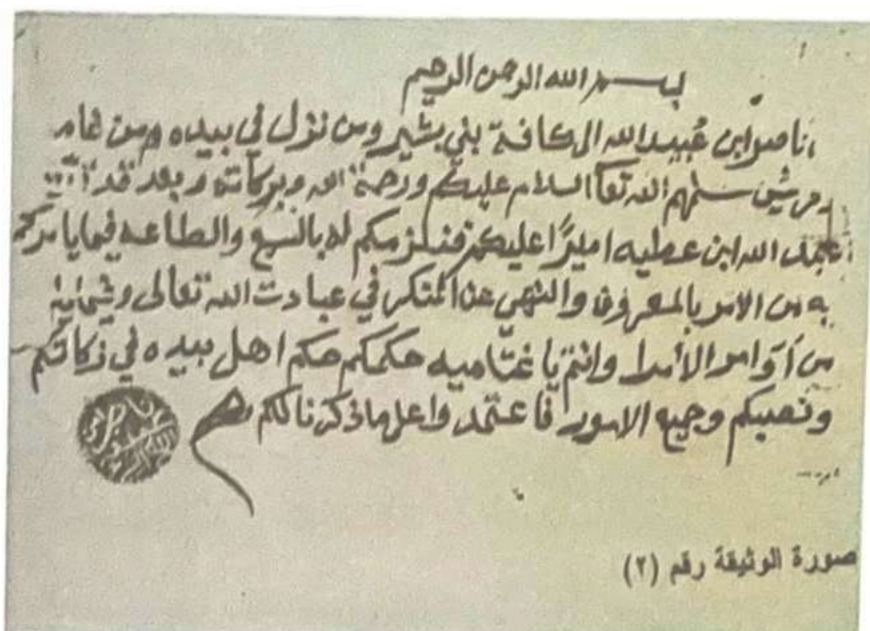 بسم الله الرحمن الرحيم
ناصر ابن عبيد الله الى كافة بني بشير ومن نزل في بيده ومن غام
سلمهم الله تعا السلام عليكم ورحمة الله وبركاته وبعد قد
عبد الله ابن عطيه اميرًا عليكم فنلزمكم له بالسمع والطاعه فيما يامركم
به من الامر بالمعروف والنهي عن المنكر في عبادت الله تعالى
من أوامر الأمرا وانتم يا غتاميه حكمكم حكم اهل بيده في زكاتكم
ونصبكم وجميع الامور فاعتمدوا على ما ذكرنا لكم
صورة الوثيقة رقم (٢)